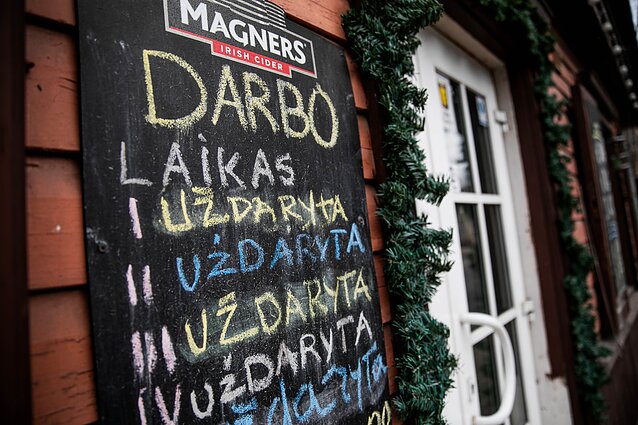 MAGNERS
IRISH CIDER
DARBO
LAIKAS
I UŽDARYTA
II UŽDARYTA
III UŽDARYTA
IV UŽDARYTA
UŽdaRYTA